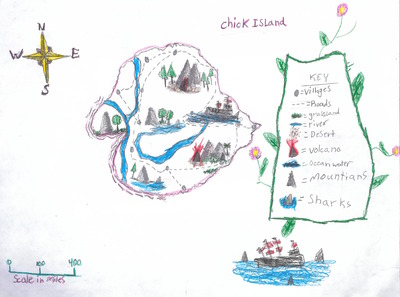 Chick Island
N
W E
S
KEY
=Villyges
=Roads
=grassland
=river
=Desert
=volcano
=Ocean water
=Mountians
=Sharks
0 100 400
Scale in miles